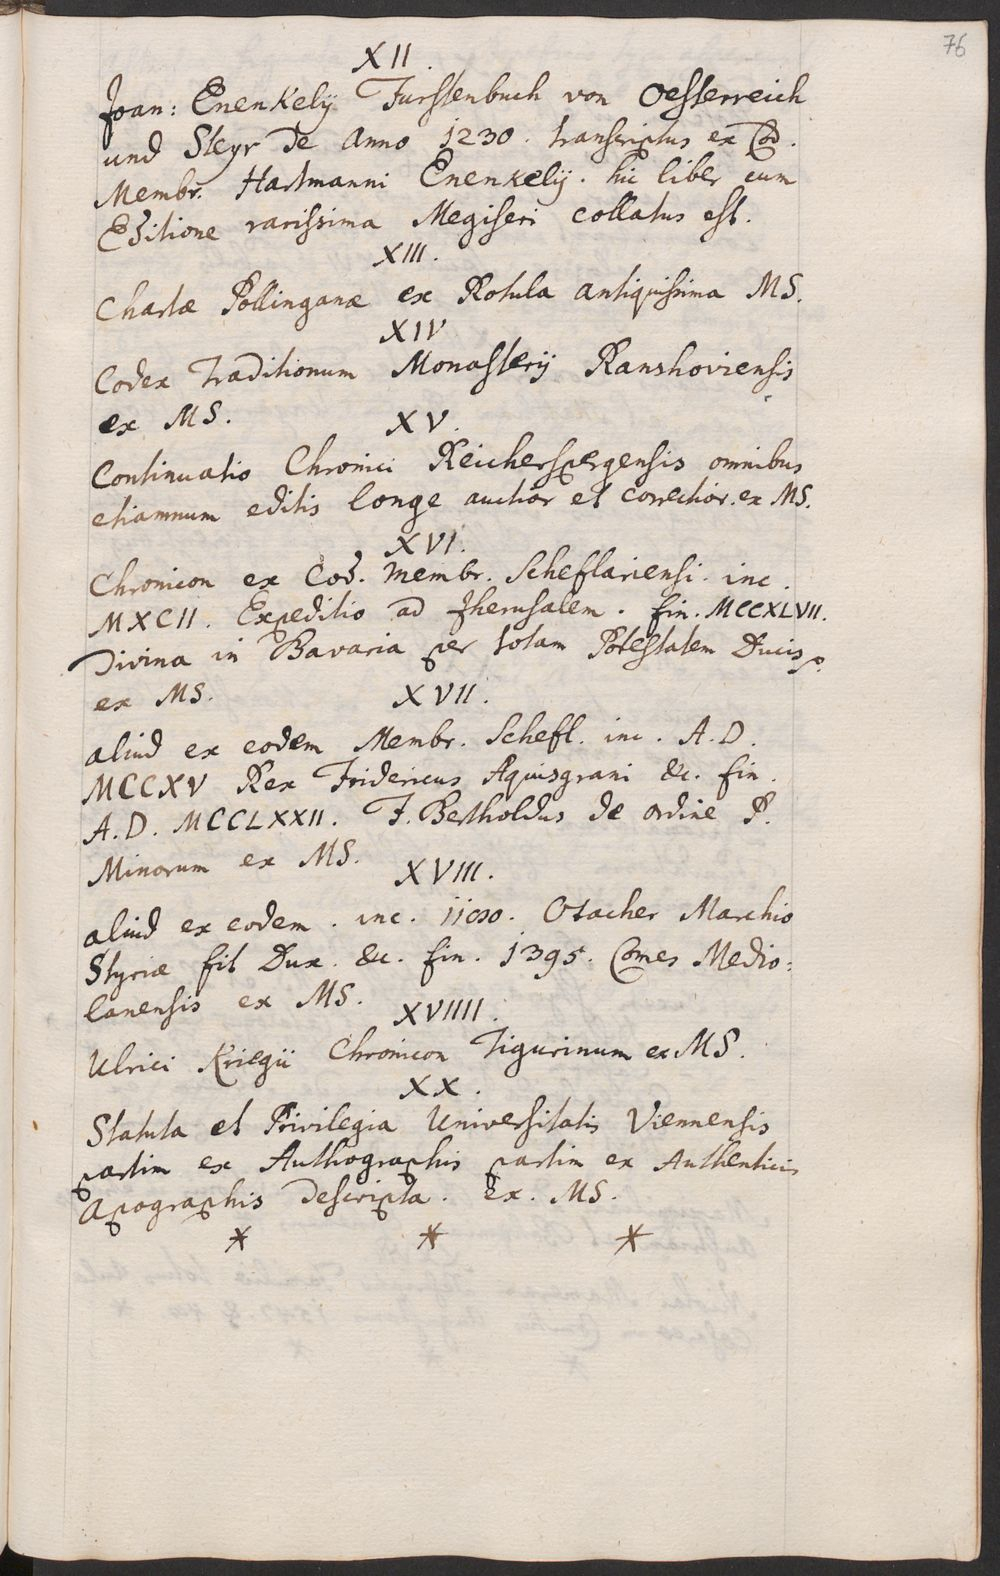 76
XII.
Joan: Enenkelÿ Furstenbuch von Oesterreich
und Steyr de Anno 1230. transcriptus ex Cod.
Membr. Hartmanni Enenkelÿ. hic liber cum
Editione rarissima Megiseri collatus est.
XIII.
Chartæ Pollinganæ ex Rotula antiquissima MS.
XIV
Codex Traditionum Monasterÿ Ranshoviensis
ex MS.
XV.
Continuatio Chronici Reicherspergensis omnibus
etiamnum editis longe auctior et correctior. ex MS.
XVI.
Chronicon ex Cod. Membr. Scheflariensi. inc.
MXCII. Expeditio ad Jherusalem. fin. MCCXLVII.
Divina in Bavaria per totam Potestatem Ducis
ex MS.
XVII.
aliud ex eodem Membr. Schefl. inc. A.D.
MCCXV Rex Fridericus Aquisgrani &c. fin.
A.D. MCCLXXII. F. Bertholdus de ordine P.
Minorum ex MS.
XVIII.
aliud ex eodem. inc. Otacher Marchio
Styriæ fit Dux. &c. fin. 1395. Comes Medio:
lanensis ex MS.
XVIIII.
Ulrici Kriegii Chronicon Tigurinum ex MS.
XX.
Statuta et Privilegia Universitatis Viennensis
partim ex Authographis partim ex Authenticis
Apographis descripta. ex. MS.
* * *